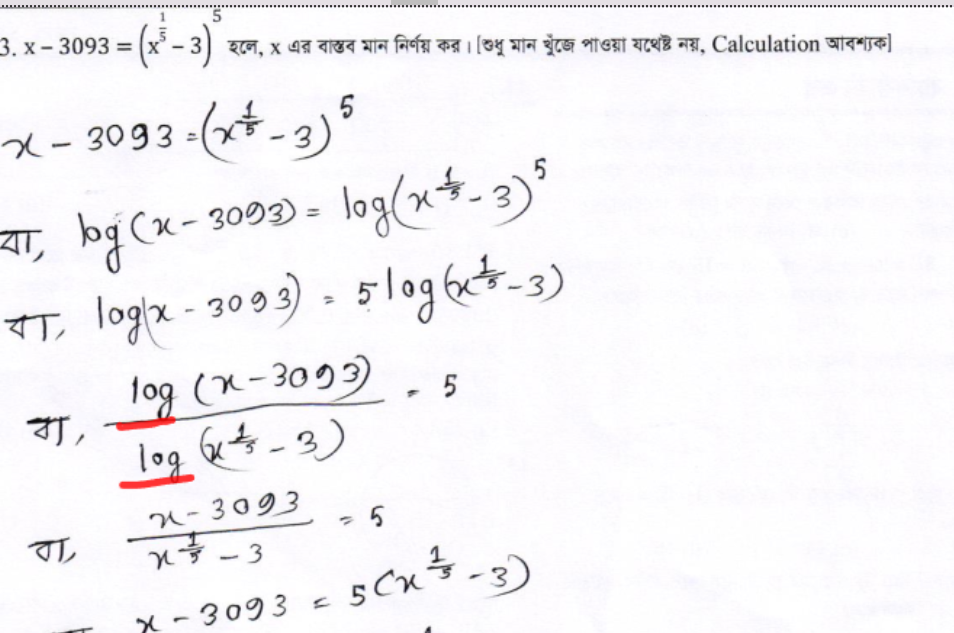 3. x – 3093 = (x^{1/5} – 3)^5 হলে, x এর বাস্তব মান নির্ণয় কর। [শুধু মান খুঁজে পাওয়া যথেষ্ট নয়, Calculation আবশ্যক]
x – 3093 = (x^{1/5} – 3)^5
বা, log (x – 3093) = log (x^{1/5} – 3)^5
বা, log(x – 3093) = 5 log (x^{1/5} – 3)
বা, log (x – 3093) / log (x^{1/5} – 3) = 5
বা, x – 3093 / x^{1/5} – 3 = 5
x – 3093 = 5 (x^{1/5} – 3)